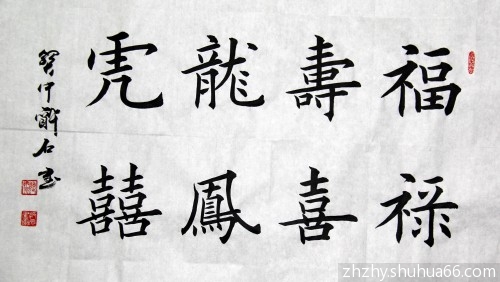 福禄
壽喜
龍鳳
虎囍
石
zhzhyshuhua66.com